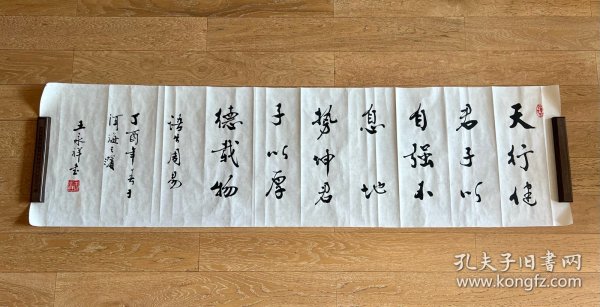 天行健
君子以
自强不
息地
势坤君
子以厚
德载物
语出周易
丁酉年春于
河海之滨
王永祥书
孔夫子旧书网
www.kongfz.com